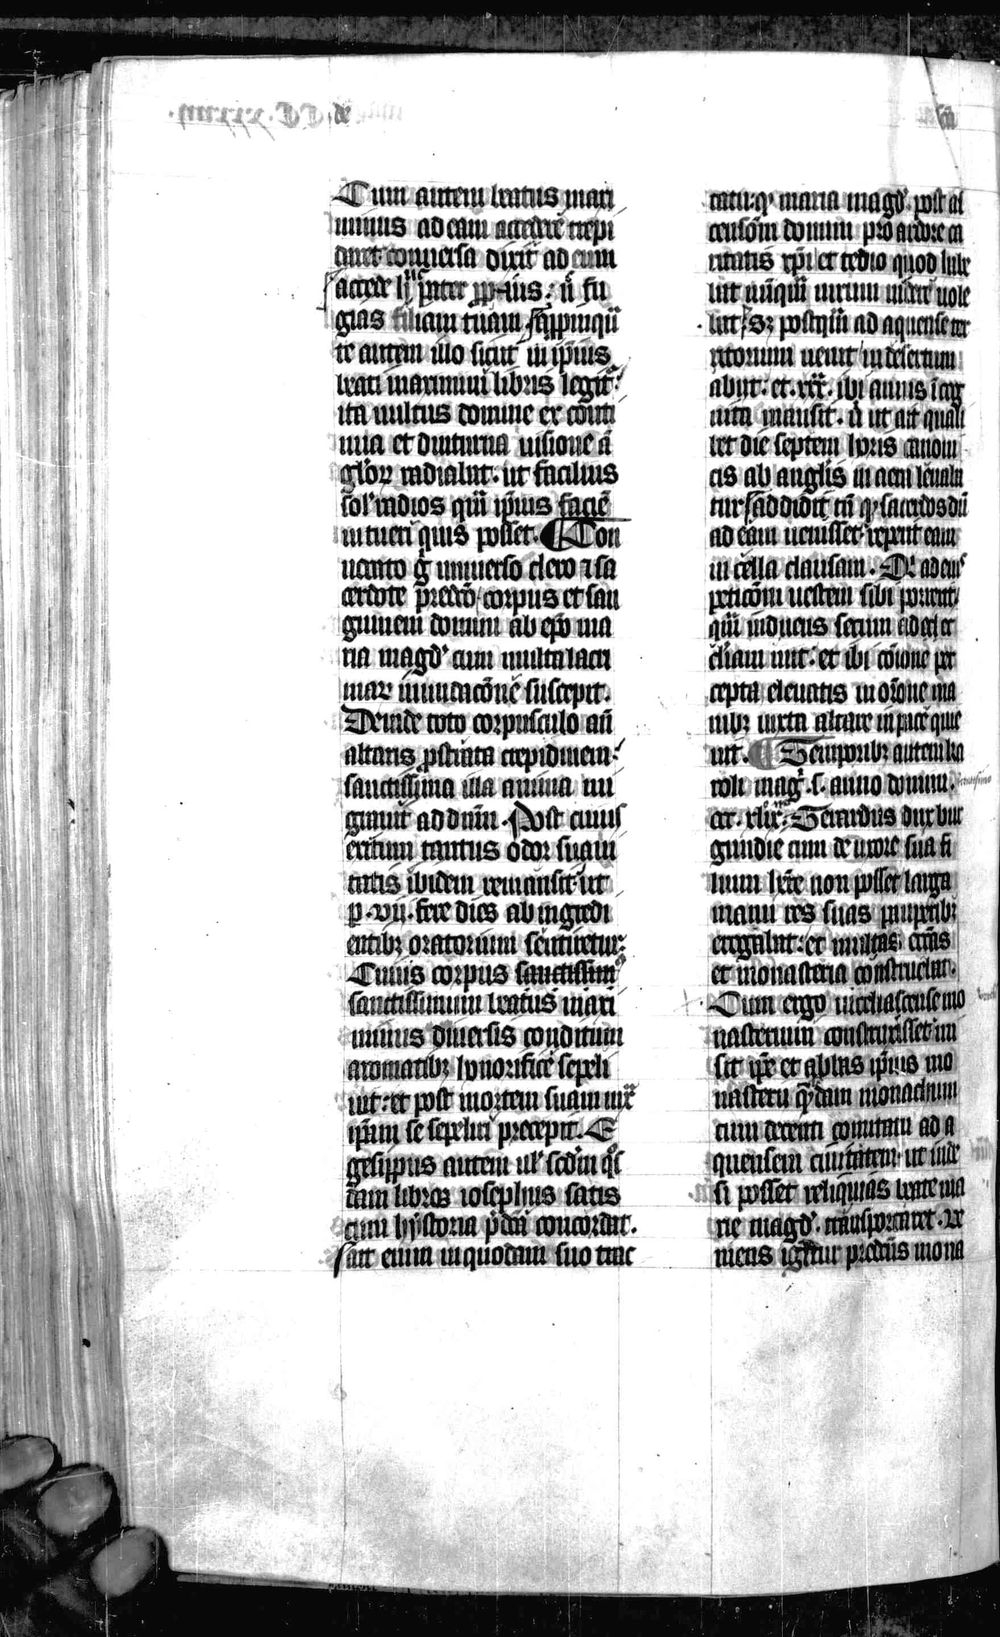 Cum autem beatus maxi
minus ad eam accedere trepi
daret conversa dixit ad eum
accede huc pater propius: ne fu
gias filiam tuam Appropinquan
te autem illo sicut in ipsius
beati maximini libris legitur:
ita vultus domine ex conti
nua et diuturna visione an
gelorum radiabat. ut facilius
solis radios quam ipsius faciem
intueri quis posset. Con
uocato ergo universo clero et sa
cerdote predicto corpus et san
guinem domini ab episcopo ma
ria magd' cum multa lacri
marum inundacione suscepit.
Deinde toto corpusculo ante
altaris prostrata crepidinem:
sanctissima illa anima mi
gravit ad dominum. Post cuius
exitum tantus odor suavi
tatis ibidem remansit ut
per .vii. fere dies ab ingredi
entibus oratorium sentiretur.
Cuius corpus sanctissimum
sanctissimum beatus maxi
minus diversis conditum
aromatibus honorifice sepeli
uit: et post mortem suam iuxta
ipsam se sepeliri precepit. E
gesippus autem vel secundum quos
dam libros iosephus satis
cum hystoria predicta concordat.
Ait enim in quodam suo trac
tatu: quod maria magd'. post as
censionem domini pro ardore ca
ritatis christi et tedio quod habe
bat numquam virum videre vole
bat. Sed postquam ad aquense ter
ritorium venit in desertum
abiit: et .xxx. ibi annis incog
nita mansit. que ut ait quali
bet die septem horis canoni
cis ab angelis in aera levaba
tur addidit tamen quod sacerdos dum
ad eam venisset reperit eam
in cella clausam. Qui ad eius
peticionem vestem sibi porrexit
quam induens secum ad ec
clesiam iuit: et ibi communione per
cepta elevatis in oratione ma
nibus iuxta altare in pace quie
uit. Temporibus autem ka
roli mag. s. anno domini.
cc. xlix. Gerardus dux bur
gundie cum de uxore sua fi
lium habere non posset larga
manu res suas pauperibus
erogabat: et multas ecclesias
et monasteria construebat.
Cum ergo vicelia scense mo
nasterium construxisset mi
sit ipse et abbas ipsius mo
nasterii quemdam monachum
cum decenti comitatu ad a
quensem civitatem ut inde
si posset reliquias beate ma
rie magd'. transportaret. Ve
niens igitur predictus mona